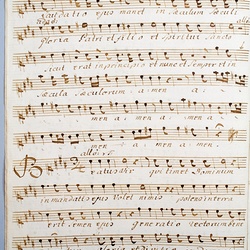 laudatio ejus manet in sæculum sæculi
gloria Patri et filio et Spiritui Sancto
sicut erat in principio et nunc et semper et in
sæcula sæculorum a men a
men a men a
men a men amen
Beatus vir qui timet Dominum
in mandatis ejus volet nimis potens in terra
erit semen ejus Generatio rectorum bene